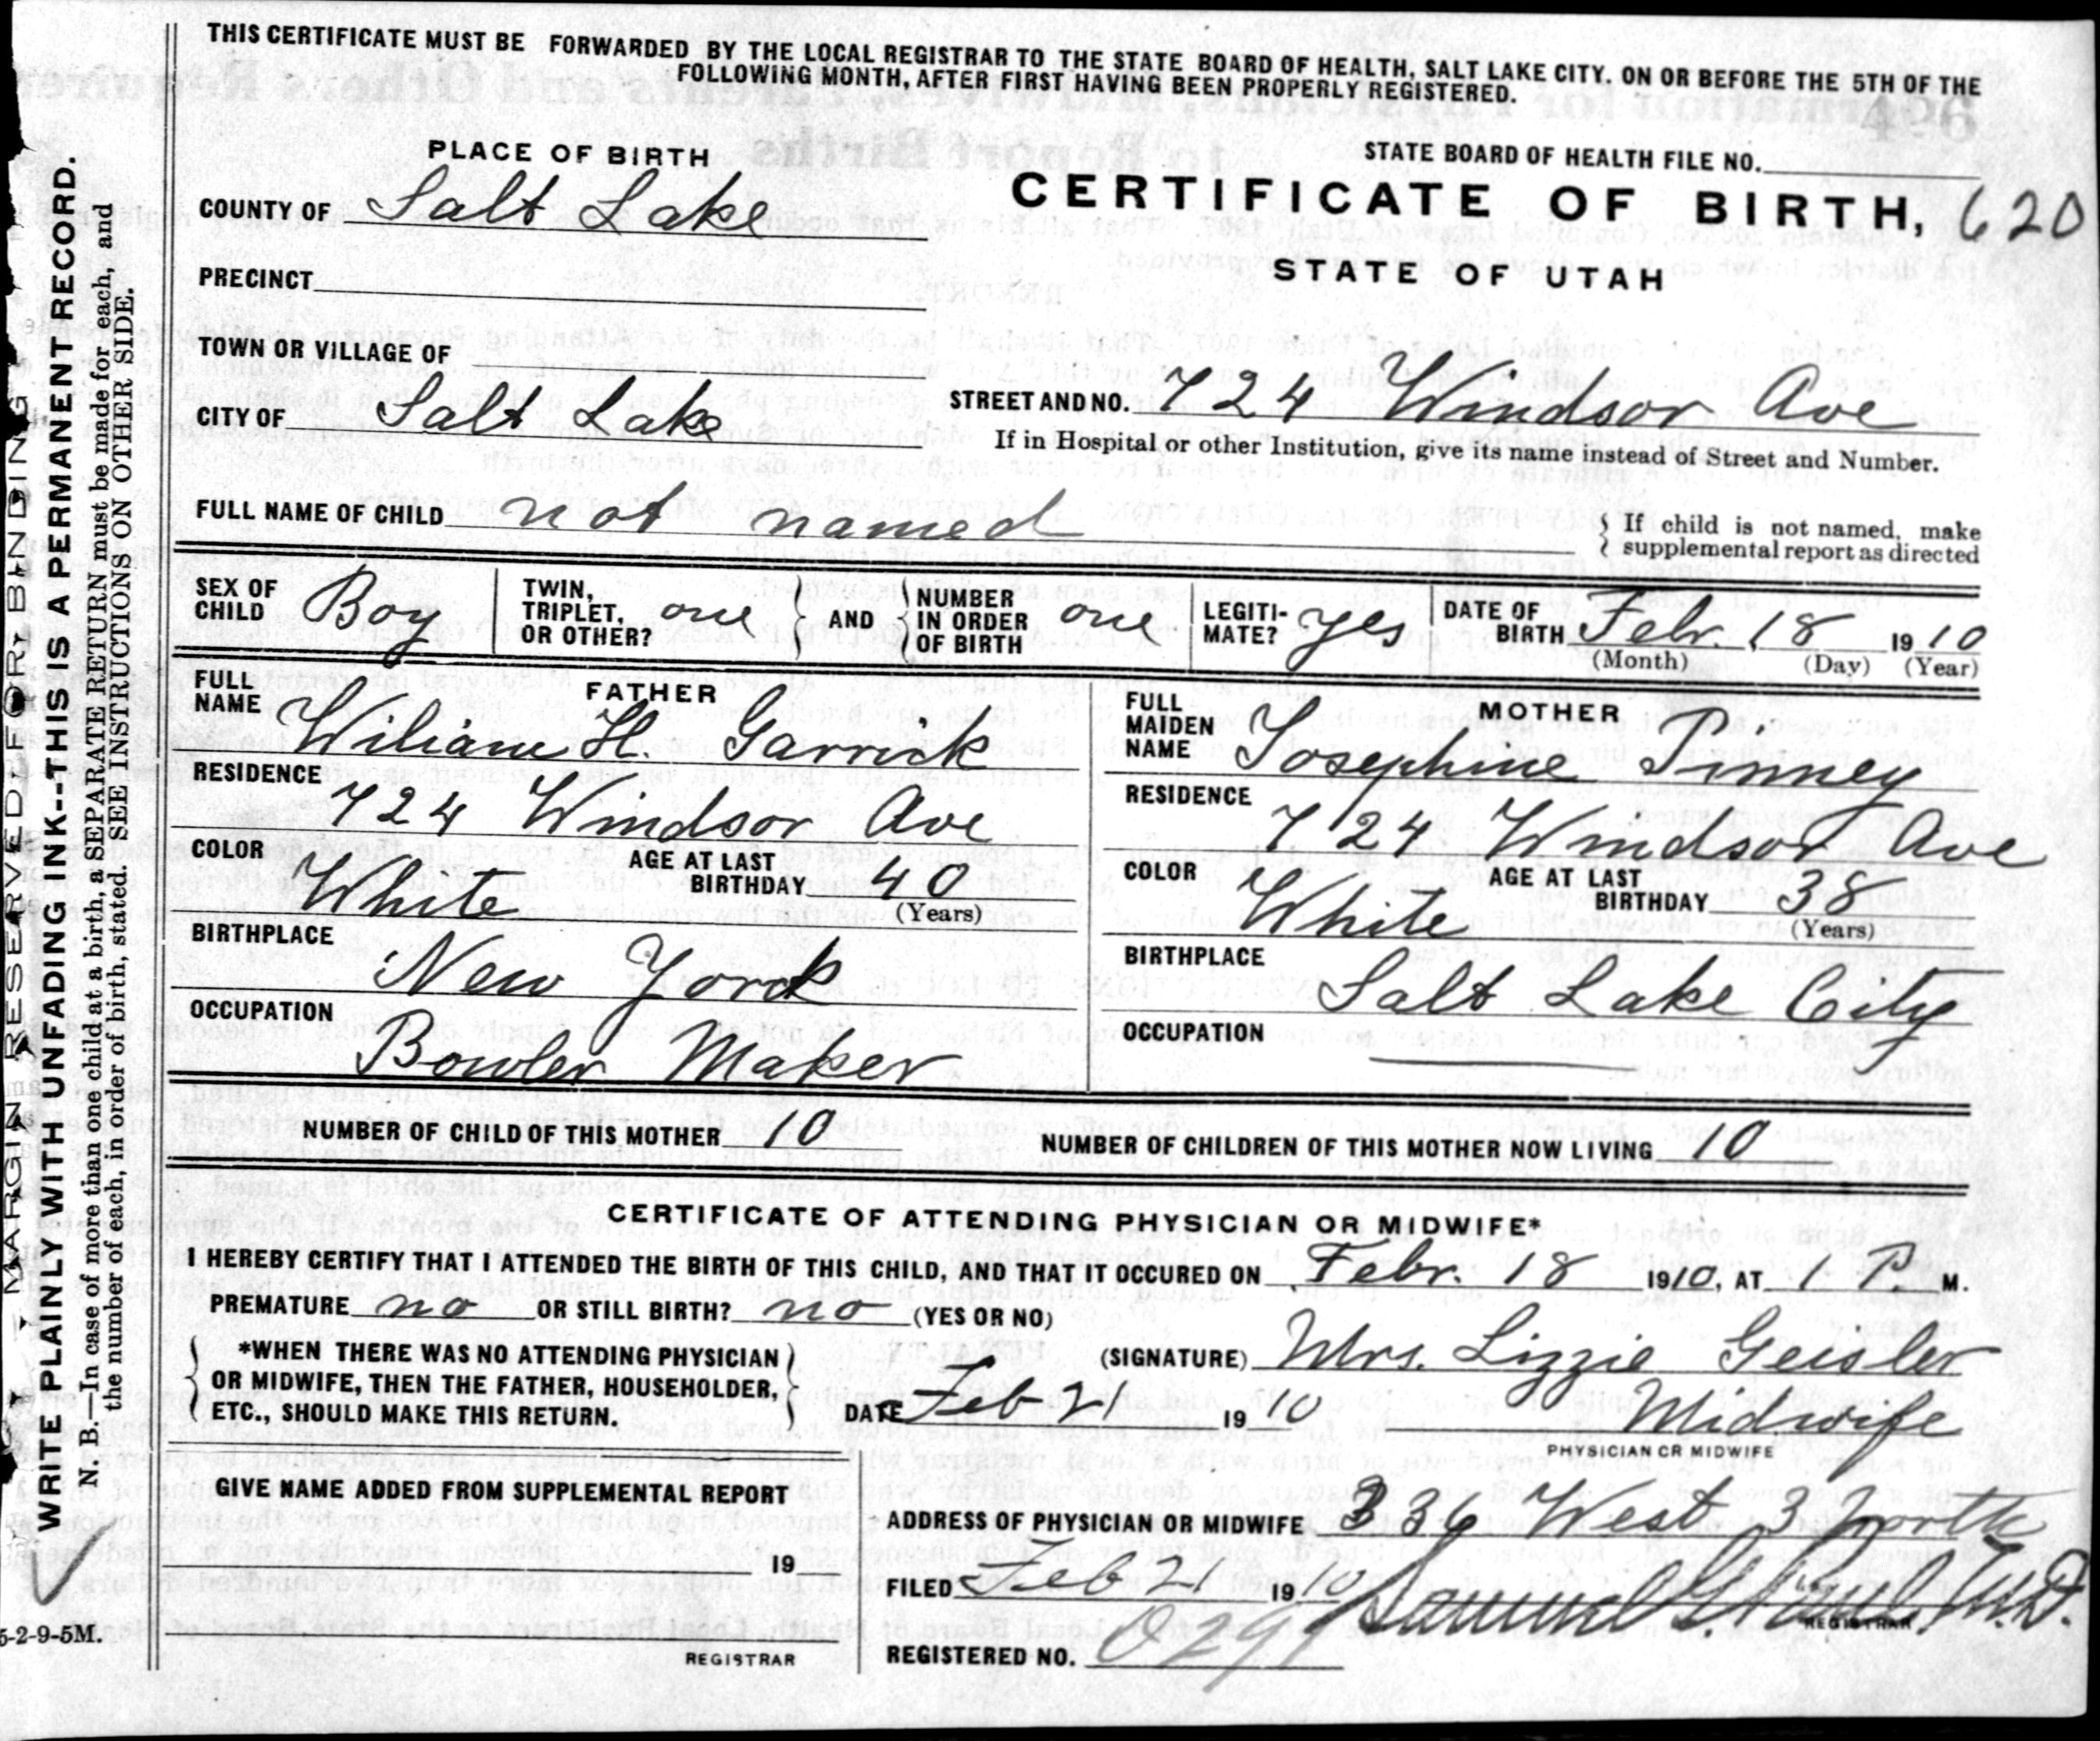 THIS CERTIFICATE MUST BE FORWARDED BY THE LOCAL REGISTRAR TO THE STATE BOARD OF HEALTH, SALT LAKE CITY. ON OR BEFORE THE 5TH OF THE
FOLLOWING MONTH, AFTER FIRST HAVING BEEN PROPERLY REGISTERED.
PLACE OF BIRTH
STATE BOARD OF HEALTH FILE NO.
COUNTY OF Salt Lake
CERTIFICATE OF BIRTH, 620
PRECINCT
STATE OF UTAH
TOWN OR VILLAGE OF
CITY OF Salt Lake
STREET AND NO. 724 Windsor Ave
If in Hospital or other Institution, give its name instead of Street and Number.
FULL NAME OF CHILD not named
If child is not named, make
supplemental report as directed
SEX OF CHILD Boy
TWIN, TRIPLET, OR OTHER? one
AND
NUMBER IN ORDER OF BIRTH one
LEGITI-MATE? yes
DATE OF BIRTH Febr. 18 1910
(Month) (Day) (Year)
FATHER
FULL NAME Wiliam H. Garrick
RESIDENCE 724 Windsor Ave
COLOR White
AGE AT LAST BIRTHDAY 40
(Years)
BIRTHPLACE New York
OCCUPATION Bowler Maker
MOTHER
FULL MAIDEN NAME Josephine Pinney
RESIDENCE 724 Windsor Ave
COLOR White
AGE AT LAST BIRTHDAY 38
(Years)
BIRTHPLACE Salt Lake City
OCCUPATION
NUMBER OF CHILD OF THIS MOTHER 10
NUMBER OF CHILDREN OF THIS MOTHER NOW LIVING 10
CERTIFICATE OF ATTENDING PHYSICIAN OR MIDWIFE*
I HEREBY CERTIFY THAT I ATTENDED THE BIRTH OF THIS CHILD, AND THAT IT OCCURED ON Febr. 18 1910, AT 1 P M.
PREMATURE no OR STILL BIRTH? no (YES OR NO)
*WHEN THERE WAS NO ATTENDING PHYSICIAN
OR MIDWIFE, THEN THE FATHER, HOUSEHOLDER,
ETC., SHOULD MAKE THIS RETURN.
(SIGNATURE) Mrs. Lizzie Geisler
DATE Feb 21 1910
Midwife
PHYSICIAN OR MIDWIFE
GIVE NAME ADDED FROM SUPPLEMENTAL REPORT
19
REGISTRAR
ADDRESS OF PHYSICIAN OR MIDWIFE 336 West 3 North
FILED Feb 21 1910 Samuel G. Paul, M.D.
REGISTRAR
REGISTERED NO. 0299
MARGIN RESERVED FOR BINDING
WRITE PLAINLY WITH UNFADING INK--THIS IS A PERMANENT RECORD.
N. B.—In case of more than one child at a birth, a SEPARATE RETURN must be made for each, and
the number of each, in order of birth, stated. SEE INSTRUCTIONS ON OTHER SIDE.
5-2-9-5M.